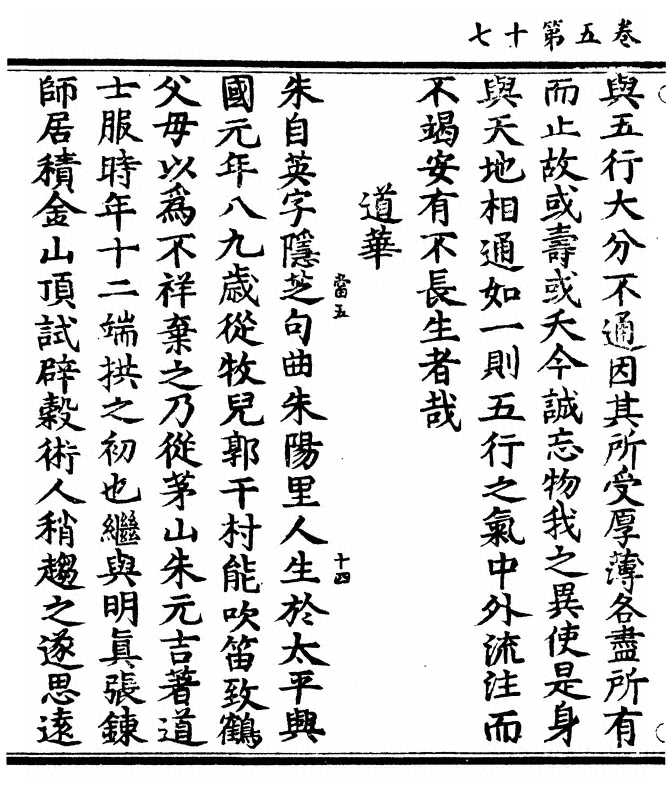 卷五第十七
與五行大分不通因其所受厚薄各盡所有
而止故或壽或夭今誠忘物我之異使是身
與天地相通如一則五行之氣中外流注而
不竭安有不長生者哉
道華
當五
十四
朱自英字隱芝句曲朱陽里人生於太平興
國元年八九歳從牧兒郭干村能吹笛致鶴
父母以為不祥棄之乃從茅山朱元吉著道
士服時年十二端拱之初也繼與明真張鍊
師居積金山頂試辟穀術人稍趨之遂思遠